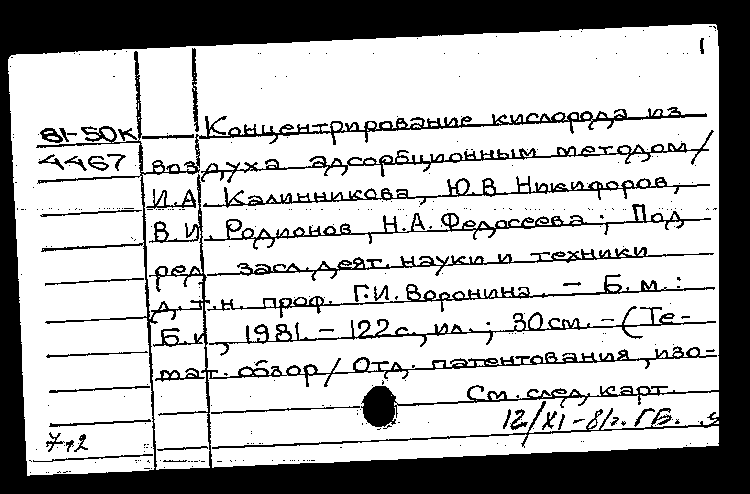 1
81-50к Концентрирование кислорода из
4467 воздуха адсорбционным методом/
И.А. Калинникова, Ю.В. Никифоров,
В.И. Родионов, Н.А. Федосеева; Под
ред. засл. деят. науки и техники
д.т.н. проф. Г.И. Воронина. - Б.м.:
Б.и., 1981. - 122с., ил.; 30см. - (Те-
мат. обзор/ Отд. патентования, изо-
См. след. карт.
12/XI-81г. ГБ.